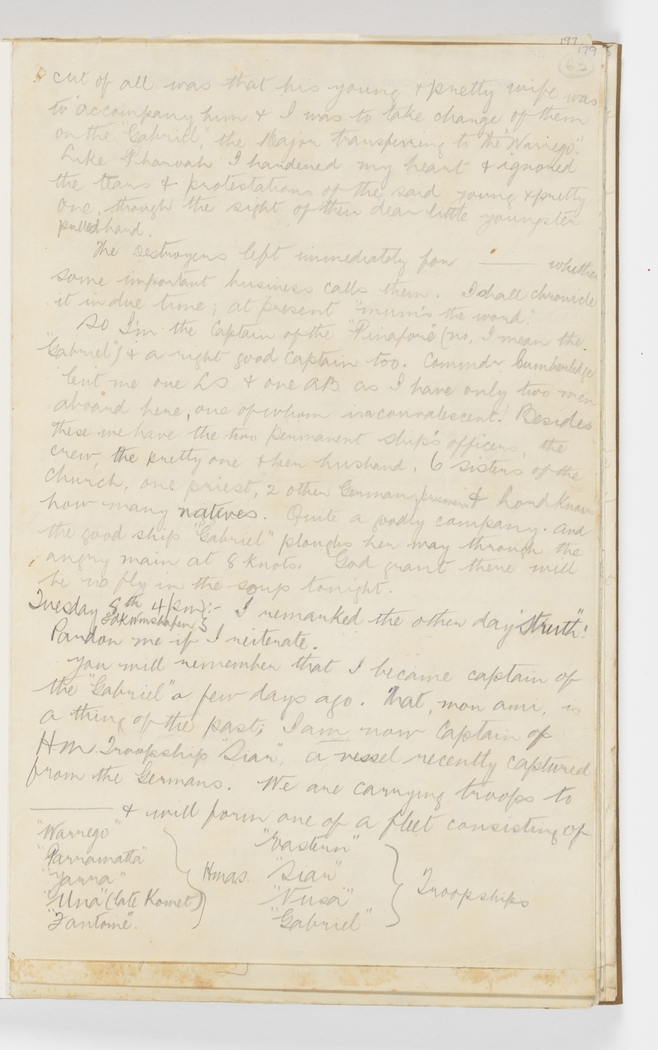 197
179
63
cut of all was that his young & pretty wife was
to accompany him & I was to take charge of them
on the "Gabriel", the Major transferring to the "Warrego".
Like Pharoah I hardened my heart & ignored
the tears & protestations of the said young & pretty
one, though the sight of their dear little youngster
pulled hard.
The Destroyers left immediately for ——— whither
some important business calls them. I shall chronicle
it in due time; at present "mum's the word."
So I'm the Captain of the "Pinafore" (no, I mean the
"Gabriel") & a right good captain too. Commdr Cumberlege
lent me one LS & one AB as I have only two men
aboard here, one of whom is a convalescent! Besides
these we have the two permanent ship's officers, the
crew, the pretty one & her husband, 6 sisters of the
church, one priest, 2 other Germans & Lord knows
how many natives. Quite a godly company. And
the good ship "Gabriel" ploughs her way through the
angry main at 8 knots. God grant there will
be no fly in the soup tonight.
Tuesday 8th 4/pm:- I remarked the other day "Struth"!
Pardon me if I reiterate.
You will remember that I became captain of
the "Gabriel" a few days ago. That, mon ami, is
a thing of the past; I am now Captain of
HM Troopship "Siar", a vessel recently captured
from the Germans. We are carrying troops to
——— & will form one of a fleet consisting of
"Warrego"
"Parramatta"
"Yarra"
"Una" (late Komet)
"Fantome".
Hmas.
"Eastern"
"Siar"
"Nusa"
"Gabriel"
Troopships